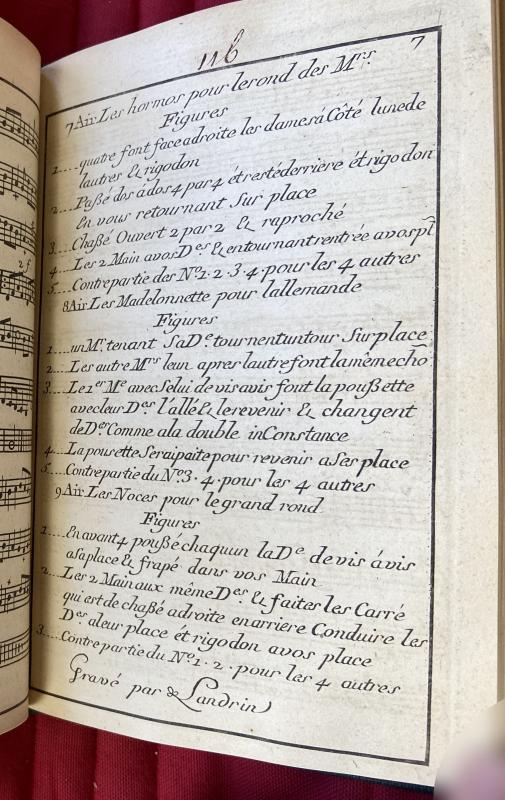 116
7
7 Air Les hormos pour le rond des Mrs.
Figures
1.... quatre font face adroite les dames á Côté lunede
lautres & rigodon
2.... Paßé dos á dos 4 par 4 ét resté derrière ét rigodon
en vous retournant Sur place
3.... Chaßé Ouvert 2 par 2 & raproché
4.... Les 2 Main avos Des & entournant rentrée avos pl
5.... Contrepartie des No. 1. 2. 3. 4. pour les 4 autres
8 Air Les Madelonnette pour lallemande
Figures
1.... un Mr. tenant Sa De tournent untour Sur place
2.... Les autre Mrs leun apres lautre font la même cho
3.... Le 1er Me avec Selui de vis avis font la poußette
avec leur Des l'allé & le revenir & changent
de Des Comme ala double inConstance
4.... La pousette Seraipaite pour revenir a Ses place
5.... Contrepartie du No. 3. 4. pour les 4 autres
9 Air Les Noces pour le grand rond
Figures
1.... En avant 4 poußé chaquun la De de vis á vis
asaplace & frapé dans vos Main
2.... Les 2 Main aux même Des & faites les Carré
qui est de chaßé adroite enarriere Conduire les
Des aleur place ét rigodon avos place
3.... Contrepartie du No. 1. 2. pour les 4 autres
Gravé par Landrin